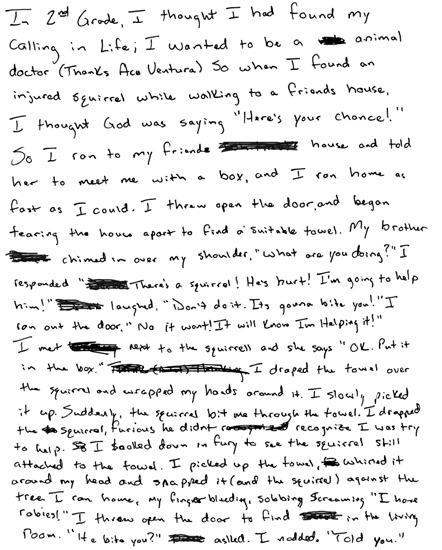 In 2nd Grade, I thought I had found my
Calling in Life; I wanted to be a animal
doctor (Thanks Ace Ventura) So when I found an
injured squirrel while walking to a friends house,
I thought God was saying "Here's your chance!"
So I ran to my friends house and told
her to meet me with a box, and I ran home as
fast as I could. I threw open the door, and began
tearing the house apart to find a suitable towel. My brother
chimed in over my shoulder, "What are you doing?" I
responded "There's a squirrel! He's hurt! I'm going to help
him!" laughed. "Don't do it. Its gonna bite you!" I
ran out the door, "No it wont! It will Know Im Helping it!"
I met next to the squirrell and she says "OK. Put it
in the box." I draped the towel over
the squirrel and wrapped my hands around it. I slowly picked
it up. Suddenly, the squirrel bit me through the towel. I dropped
the squirrel, furious he didnt recognize I was try
to help. I looked down in fury to see the squirrel still
attached to the towel. I picked up the towel, whirled it
around my head and snapped it (and the squirrel) against the
tree. I ran home, my finger bleedig, sobbing screaming "I have
rabies!" I threw open the door to find in the living
Room. "He bite you?" asked. I nodded. "Told you."